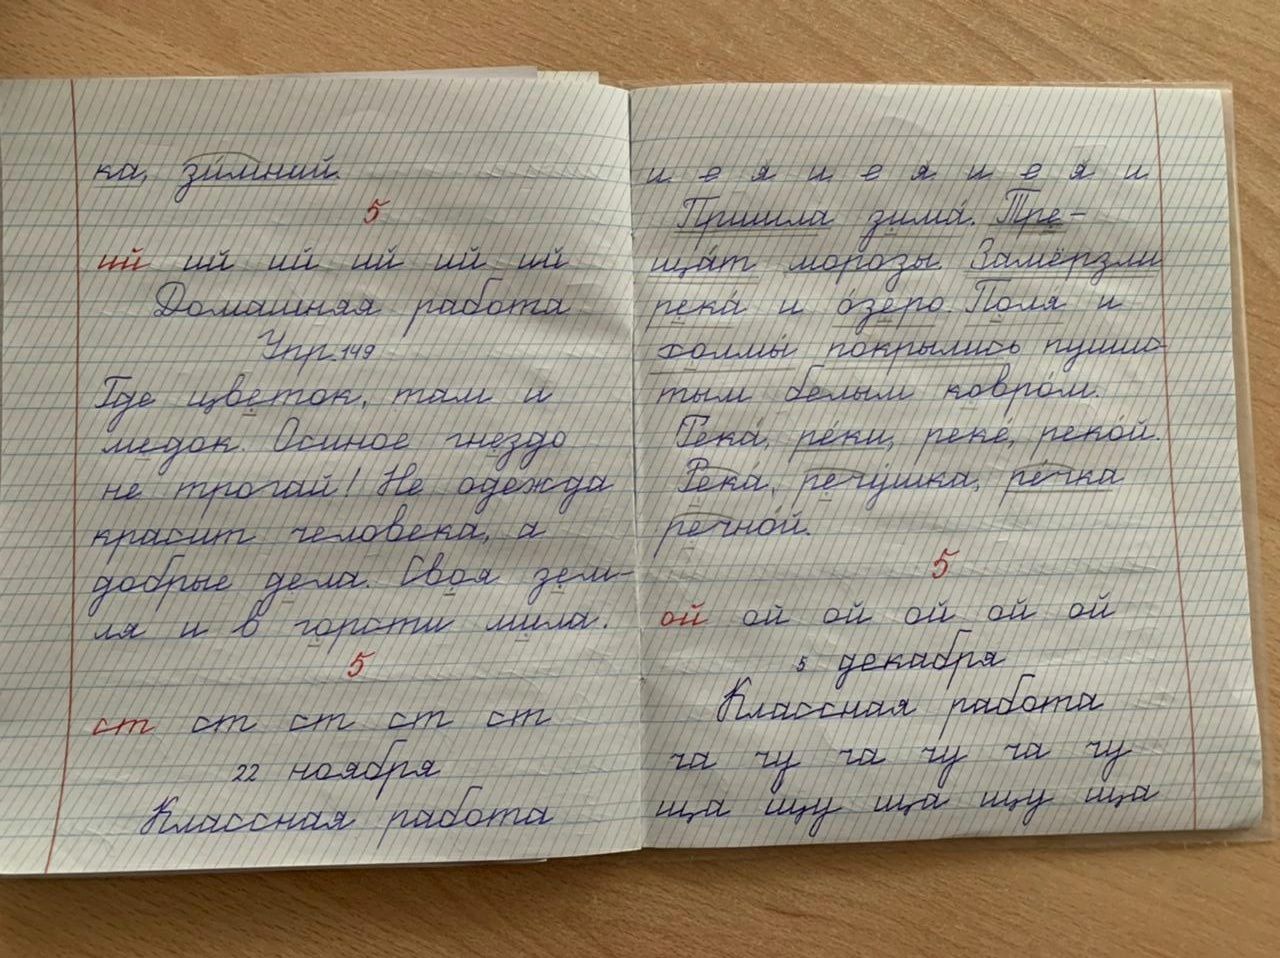 ка, зи́мний.
5
ий ий ий ий ий ий
Домашняя работа
Упр. 149
Где цветок, там и
медок. Осиное гнездо
не трогай! Не одежда
красит человека, а
добрые дела. Своя зем-
ля и в горсти мила.
5
ст ст ст ст ст
22 ноября
Классная работа
и е я и е я и е я и
Пришла зима́. Тре-
ща́т морозы. Замёрзли
река́ и о́зеро. Поля́ и
холмы́ покрылись пушис-
тым белым ковро́м.
Река́, ре́ки, реке́, реко́й.
Река́, речу́шка, ре́чка
речно́й.
5
ой ой ой ой ой ой
5 декабря
Классная работа
ча чу ча чу ча чу
ща щу ща щу ща